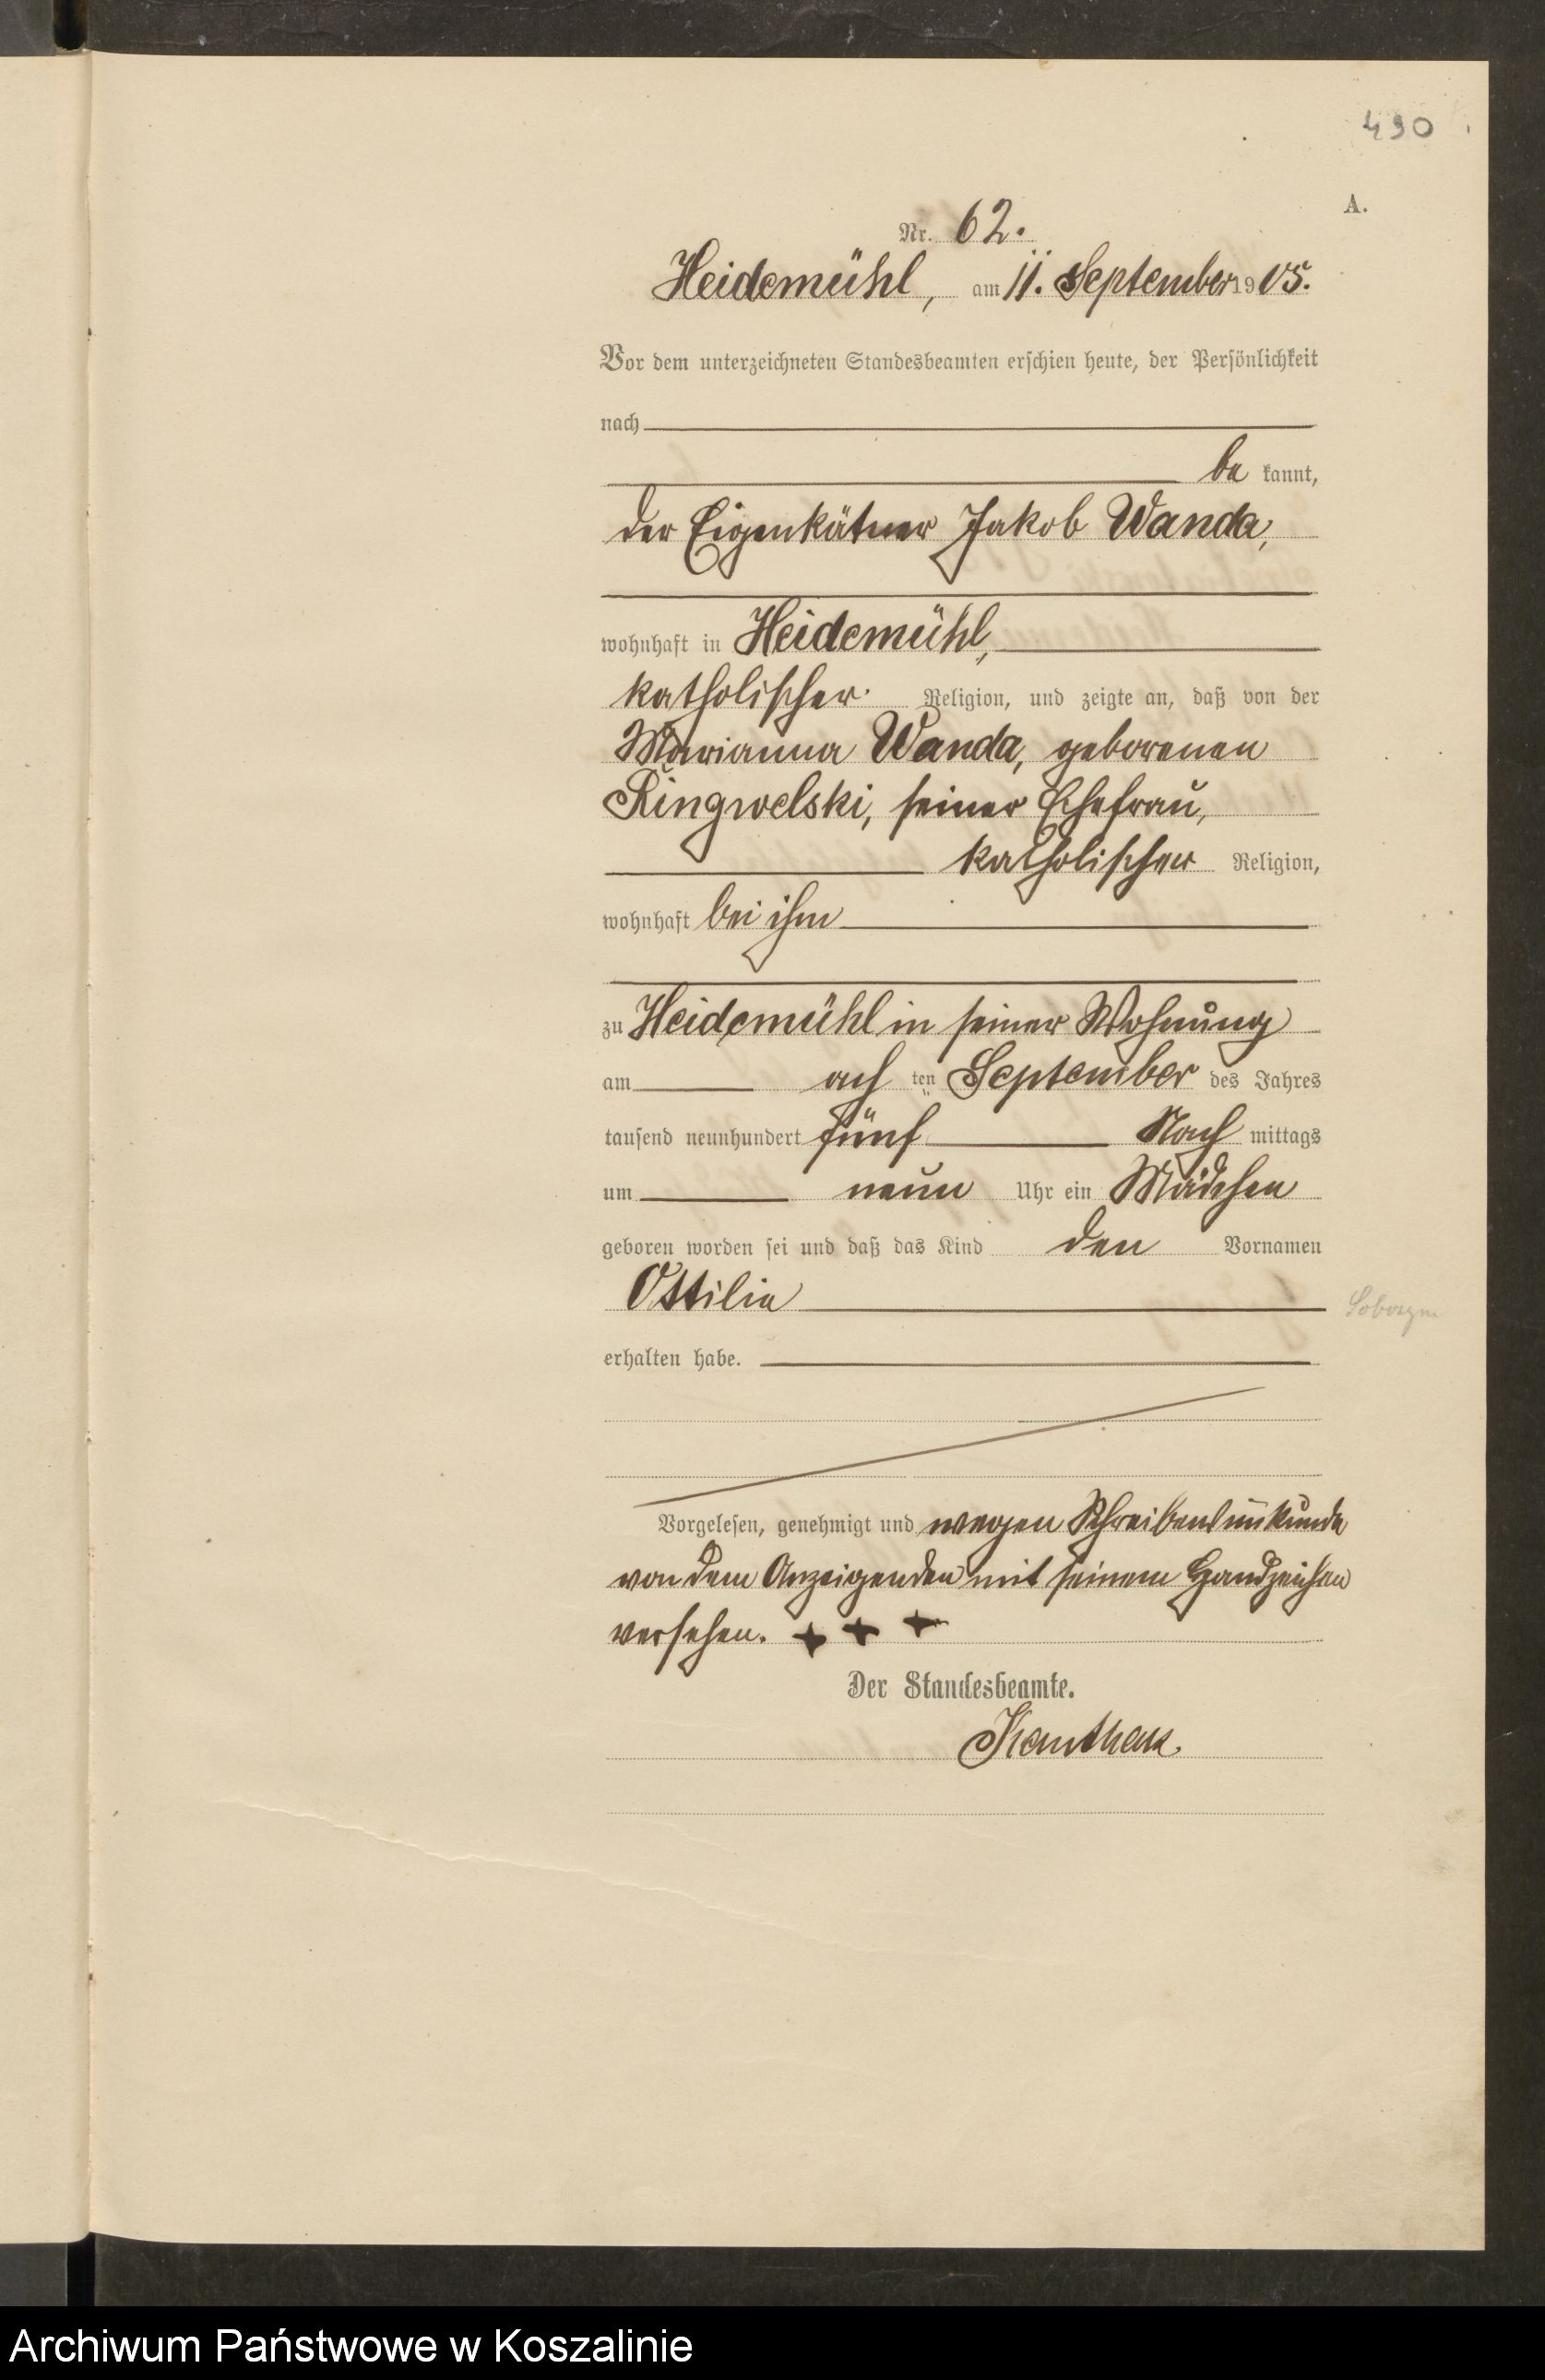 490
A.
Nr. 62.
Heidemühl, am 11. September 1905.
Vor dem unterzeichneten Standesbeamten erschien heute, der Persönlichkeit
nach
be kannt,
der Eigenkätner Jakob Wanda,
wohnhaft in Heidemühl,
katholischer Religion, und zeigte an, daß von der
Marianna Wanda, geborenen
Ringwelski, seiner Ehefrau,
katholischer Religion,
wohnhaft bei ihm
zu Heidemühl in seiner Wohnung
am ach ten September des Jahres
tausend neunhundert fünf Nach mittags
um neun Uhr ein Mädchen
geboren worden sei und daß das Kind den Vornamen
Ottilia
erhalten habe.
Vorgelesen, genehmigt und wegen Schreibensunkunde
von dem Anzeigenden mit seinem Handzeichen
versehen. + + +
Der Standesbeamte.
Kanthak
Archiwum Państwowe w Koszalinie